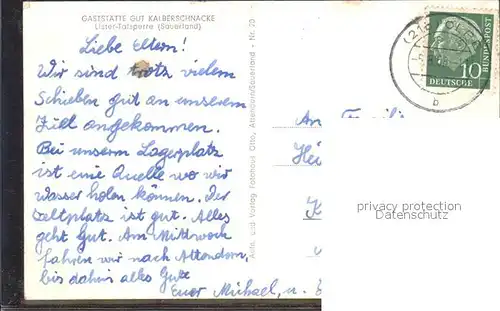 GASTSTÄTTE GUT KALBERSCHNACKE
Lister-Talsperre (Sauerland)
Liebe Eltern!
Wir sind trotz vielem
Schieben gut an unserem
Ziel angekommen.
Bei unserm Lagerplatz
ist eine Quelle wo wir
Wasser holen können. Der
Zeltplatz ist gut. Alles
geht gut. Am Mittwoch
fahren wir nach Attendorn,
bis dahin alles Gute
Euer Michael, u.
Aufn. und Verlag Fotohaus Otto, Attendorn/Sauerland - Nr. 20
An Familie
privacy protection
Datenschutz
10
DEUTSCHE
BUNDESPOST
b